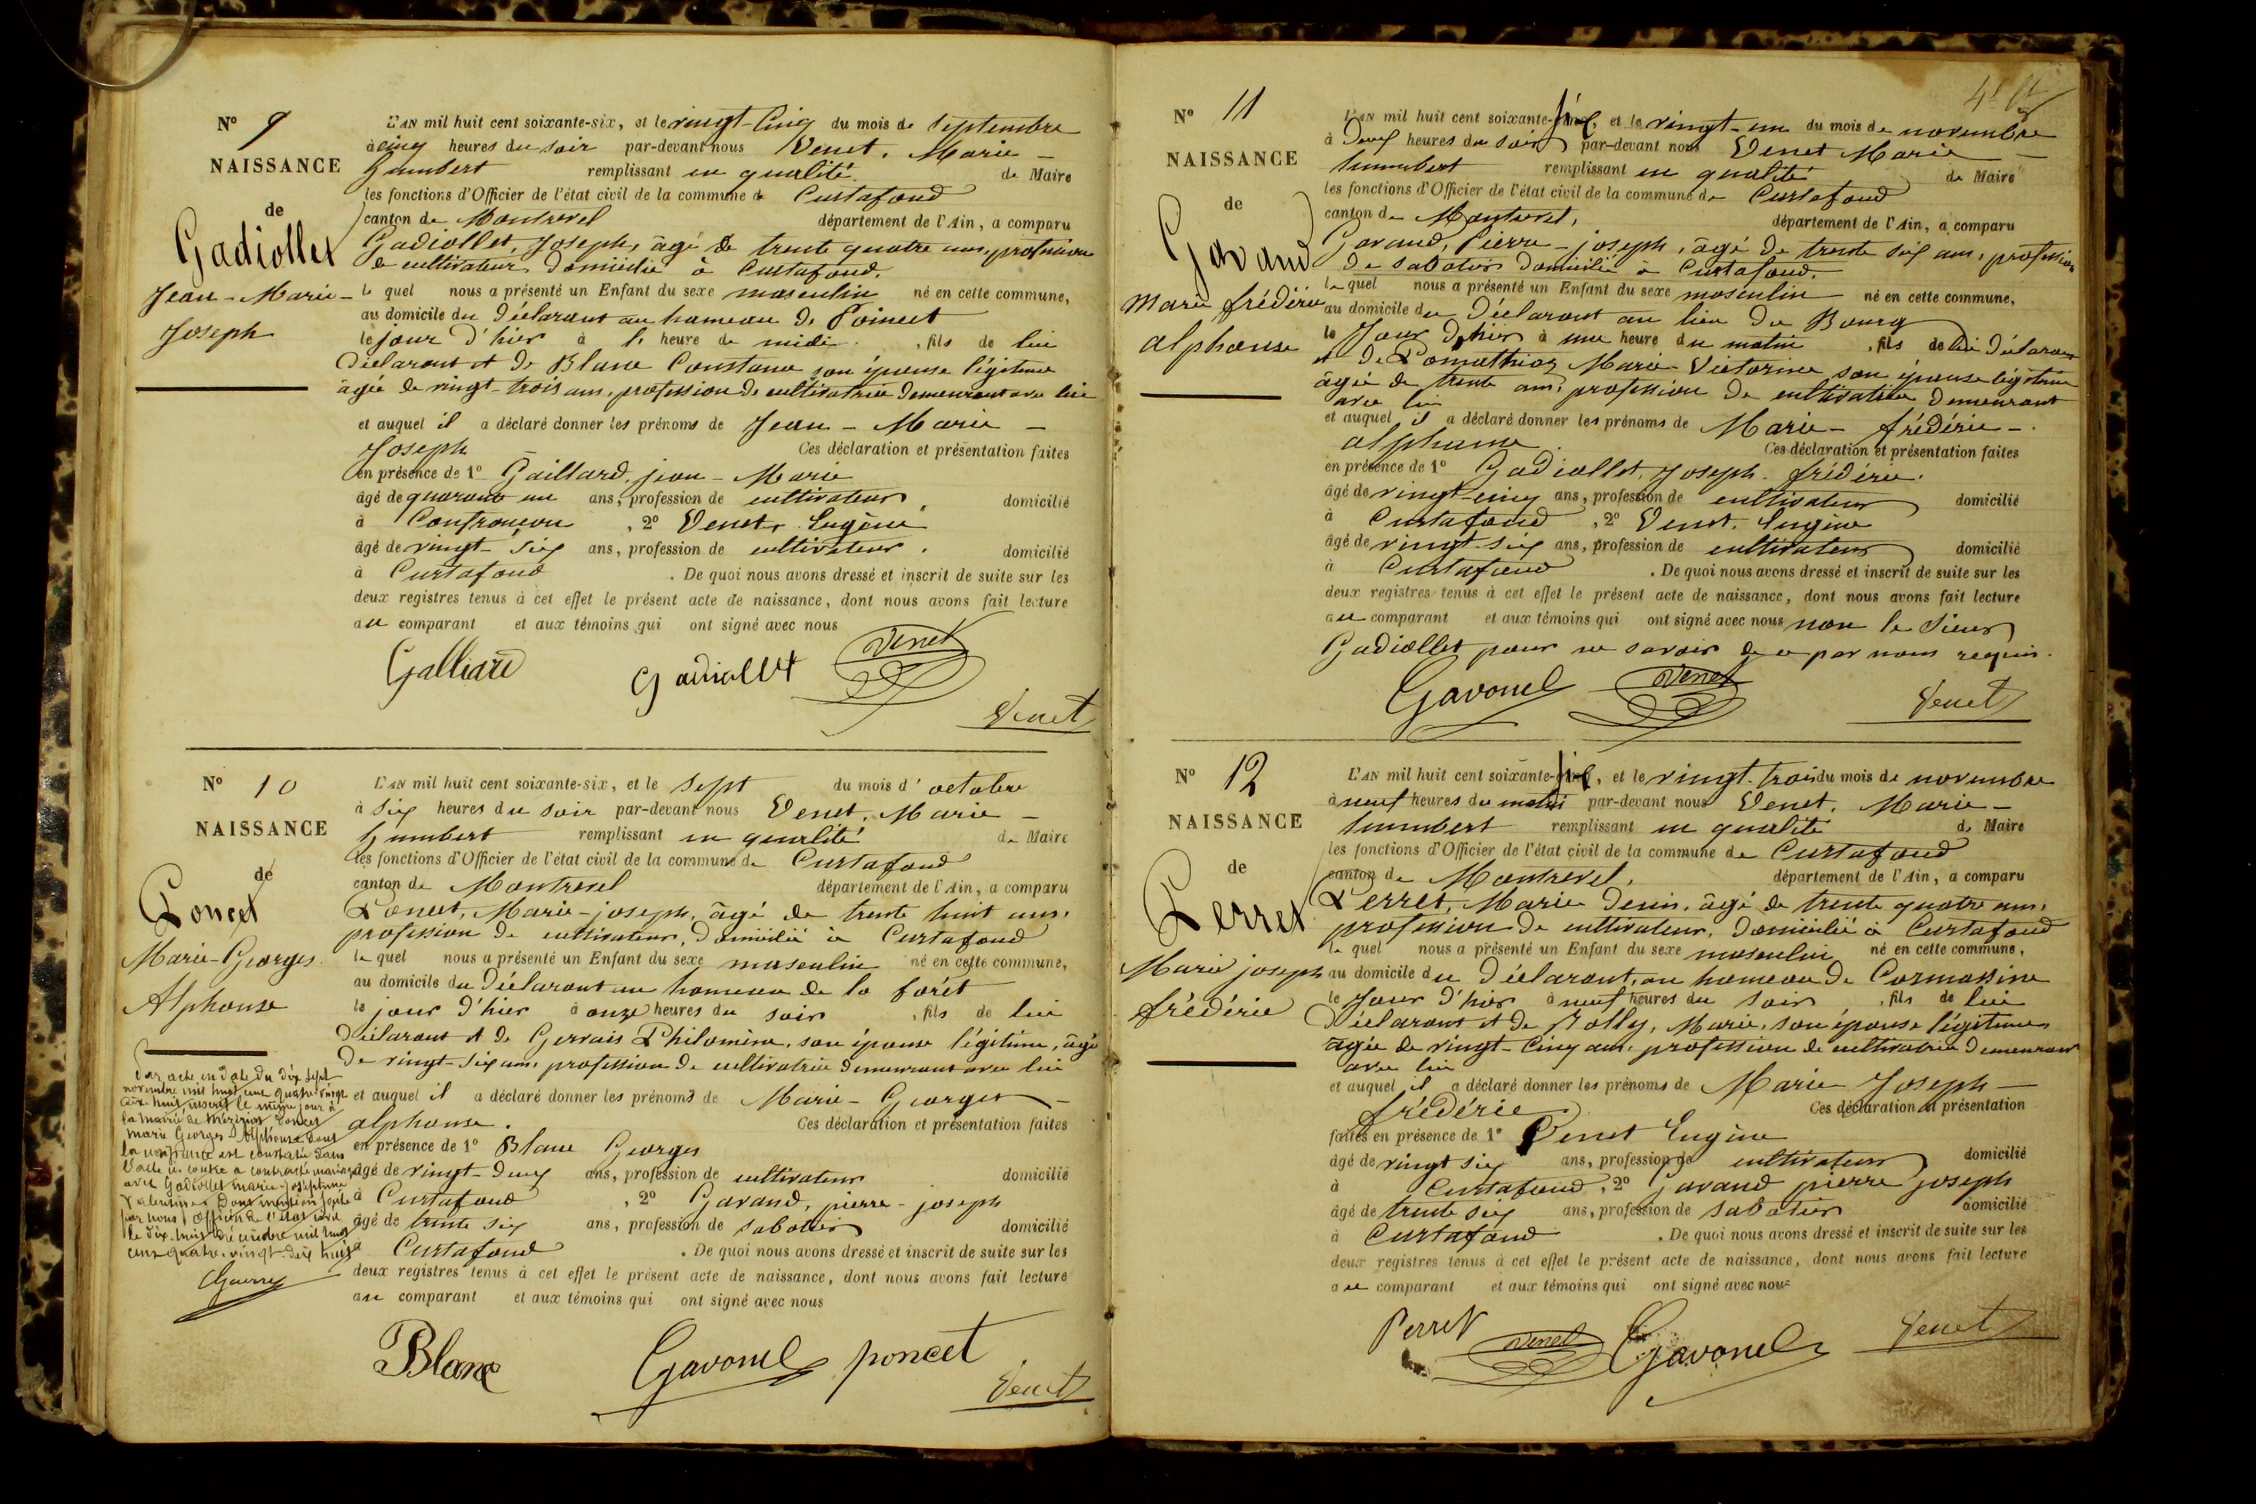 N° 9
NAISSANCE
de
Gadiollet
Jean-Marie-
Joseph
L'AN mil huit cent soixante-six, et le vingt-cinq du mois de Septembre
à cinq heures du soir par-devant nous Venet, Marie-
humbert remplissant en qualité de Maire
les fonctions d'Officier de l'état civil de la commune de Curtafond
canton de Montrevel département de l'Ain, a comparu
Gadiollet, Joseph, âgé de trente quatre ans, profession
de cultivateur domicilié à Curtafond.
le quel nous a présenté un Enfant du sexe masculin né en cette commune,
au domicile du déclarant au hameau de
le jour d'hier à l' heure de midi, fils de lui
déclarant et de Blanc Constance son épouse légitime
âgée de vingt-trois ans, profession de cultivatrice demeurant avec lui
et auquel il a déclaré donner les prénoms de Jean-Marie-
Joseph Ces déclaration et présentation faites
en présence de 1° Gaillard, jean-Marie
âgé de quarante un ans, profession de cultivateur, domicilié
à Confrançon, 2° Venet, Eugène
âgé de vingt-six ans, profession de cultivateur, domicilié
à Curtafond. De quoi nous avons dressé et inscrit de suite sur les
deux registres tenus à cet effet le présent acte de naissance, dont nous avons fait lecture
au comparant et aux témoins qui ont signé avec nous
Galliard Gadiollet Venet
Venet
N° 10
NAISSANCE
de
Poncet
Marie-Georges
Alphonse
L'AN mil huit cent soixante-six, et le sept du mois d'octobre
à six heures du soir par-devant nous Venet, Marie-
humbert remplissant en qualité de Maire
les fonctions d'Officier de l'état civil de la commune de Curtafond
canton de Montrevel département de l'Ain, a comparu
Poncet, Marie-joseph, âgé de trente huit ans,
profession de cultivateur, domicilié à Curtafond
le quel nous a présenté un Enfant du sexe masculin né en cette commune,
au domicile du déclarant au hameau de la forêt
le jour d'hier à onze heures du soir, fils de lui
déclarant et de Gervais Philomène, son épouse légitime, âgée
de vingt-six ans, profession de cultivatrice demeurant avec lui
et auquel il a déclaré donner les prénoms de Marie-Georges-
alphonse. Ces déclaration et présentation faites
en présence de 1° Blanc Georges
âgé de vingt-deux ans, profession de cultivateur domicilié
à Curtafond, 2° Gavand, pierre-joseph
âgé de trente six ans, profession de sabotier domicilié
à Curtafond. De quoi nous avons dressé et inscrit de suite sur les
deux registres tenus à cet effet le présent acte de naissance, dont nous avons fait lecture
au comparant et aux témoins qui ont signé avec nous
Par acte en date du dix sept
novembre mil huit cent quatre vingt
dix huit, inscrit le même jour à
la mairie de Mézériat Poncet
Marie Georges Alphonse dont
la naissance est constatée dans
l'acte ci contre a contracté mariage
avec Gadiollet Marie-Joséphine
Valentine Dont mention faite
par nous officier de l'état civil
le dix-huit décembre mil huit
cent quatre-vingt-dix huit
Guerry
Blanc Gavand poncet
Venet
N° 11
NAISSANCE
de
Gavand
Marie frédéric
alphonse
L'AN mil huit cent soixante-six, et le vingt-un du mois de novembre
à deux heures du soir par-devant nous Venet Marie-
humbert remplissant en qualité de Maire
les fonctions d'Officier de l'état civil de la commune de Curtafond
canton de Montrevel, département de l'Ain, a comparu
Gavand, Pierre-joseph, âgé de trente six ans, profession
de sabotier domicilié à Curtafond.
le quel nous a présenté un Enfant du sexe masculin né en cette commune,
au domicile du déclarant au lieu du Bourg
le jour d'hier à une heure du matin, fils de lui déclarant
et de Pomathios Marie Victorine son épouse légitime
âgée de trente ans, profession de cultivatrice demeurant
avec lui
et auquel il a déclaré donner les prénoms de Marie-frédéric-
alphonse. Ces déclaration et présentation faites
en présence de 1° Gadiollet, Joseph-frédéric.
âgé de vingt-cinq ans, profession de cultivateur domicilié
à Curtafond, 2° Venet, Eugène
âgé de vingt-six ans, profession de cultivateur domicilié
à Curtafond. De quoi nous avons dressé et inscrit de suite sur les
deux registres tenus à cet effet le présent acte de naissance, dont nous avons fait lecture
au comparant et aux témoins qui ont signé avec nous non le sieur
Gadiollet pour ne savoir de ce par nous requis.
Gavand Venet Venet
N° 12
NAISSANCE
de
Perret
Marie joseph
frédéric
L'AN mil huit cent soixante-six, et le vingt-trois du mois de novembre
à neuf heures du matin par-devant nous Venet, Marie-
humbert remplissant en qualité de Maire
les fonctions d'Officier de l'état civil de la commune de Curtafond
canton de Montrevel, département de l'Ain, a comparu
Perret, Marie denis, âgé de trente quatre ans,
profession de cultivateur, domicilié à Curtafond
le quel nous a présenté un Enfant du sexe masculin né en cette commune,
au domicile du déclarant, au hameau de Cormassine
le jour d'hier à neuf heures du soir, fils de lui
déclarant et de Rolly, Marie, son épouse légitime
âgée de vingt-cinq ans, profession de cultivatrice demeurant
avec lui
et auquel il a déclaré donner les prénoms de Marie Joseph-
frédéric Ces déclaration et présentation
faites en présence de 1° Venet Eugène
âgé de vingt six ans, profession de cultivateur domicilié
à Curtafond, 2° Gavand pierre joseph
âgé de trente six ans, profession de sabotier domicilié
à Curtafond. De quoi nous avons dressé et inscrit de suite sur les
deux registres tenus à cet effet le présent acte de naissance, dont nous avons fait lecture
au comparant et aux témoins qui ont signé avec nous
Perret Venet Gavand Venet